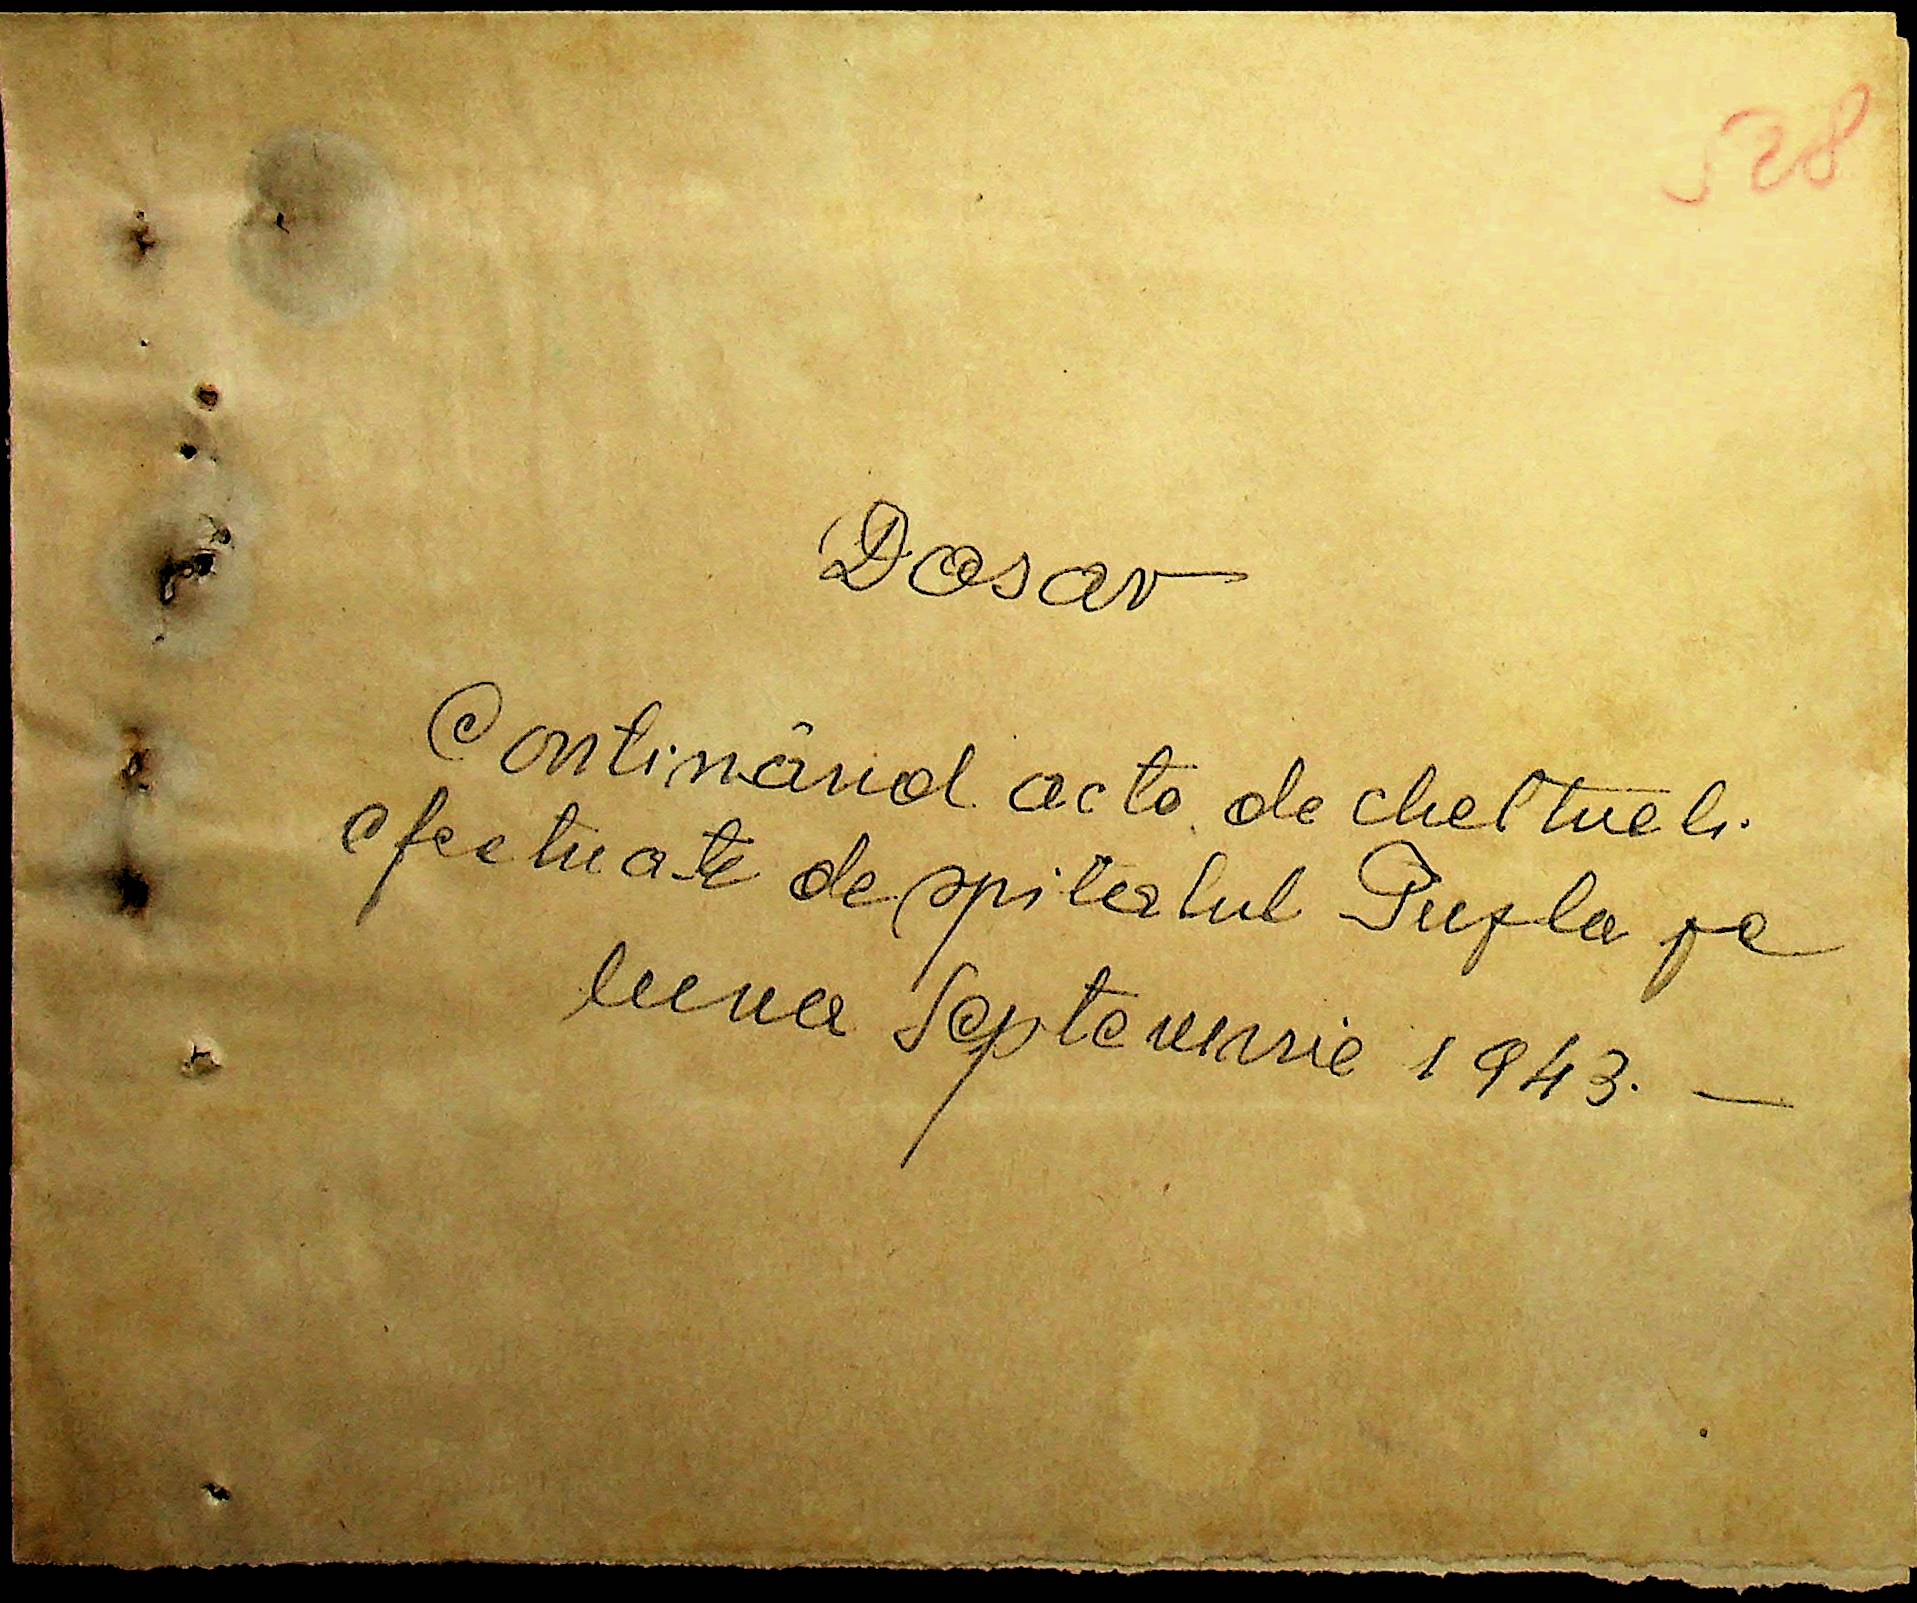 528
Dosar
Continând acte de cheltueli
efectuate de spitalul Pufla pe
luna Septemvrie 1943. —